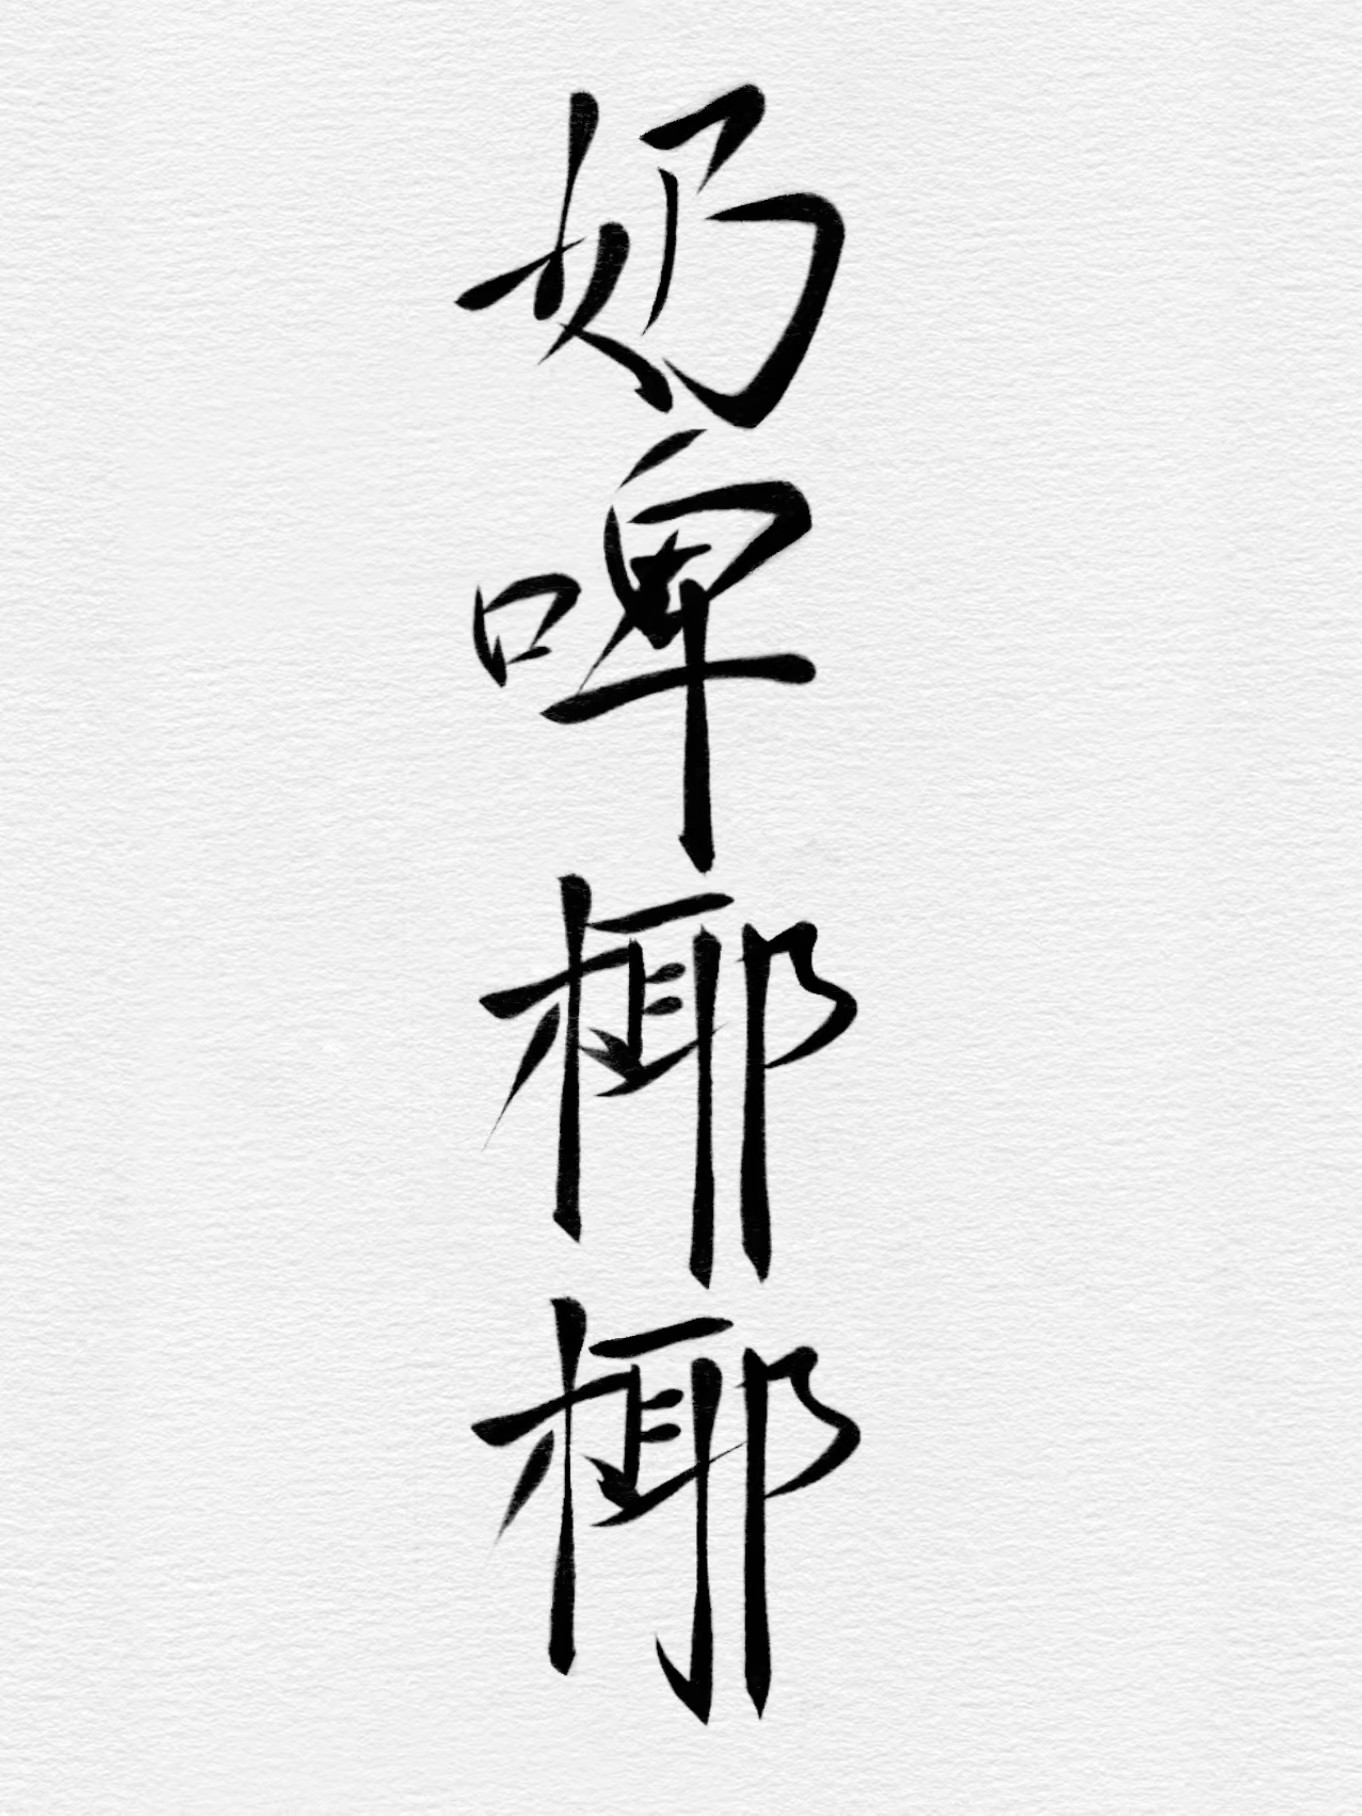 奶啤椰椰